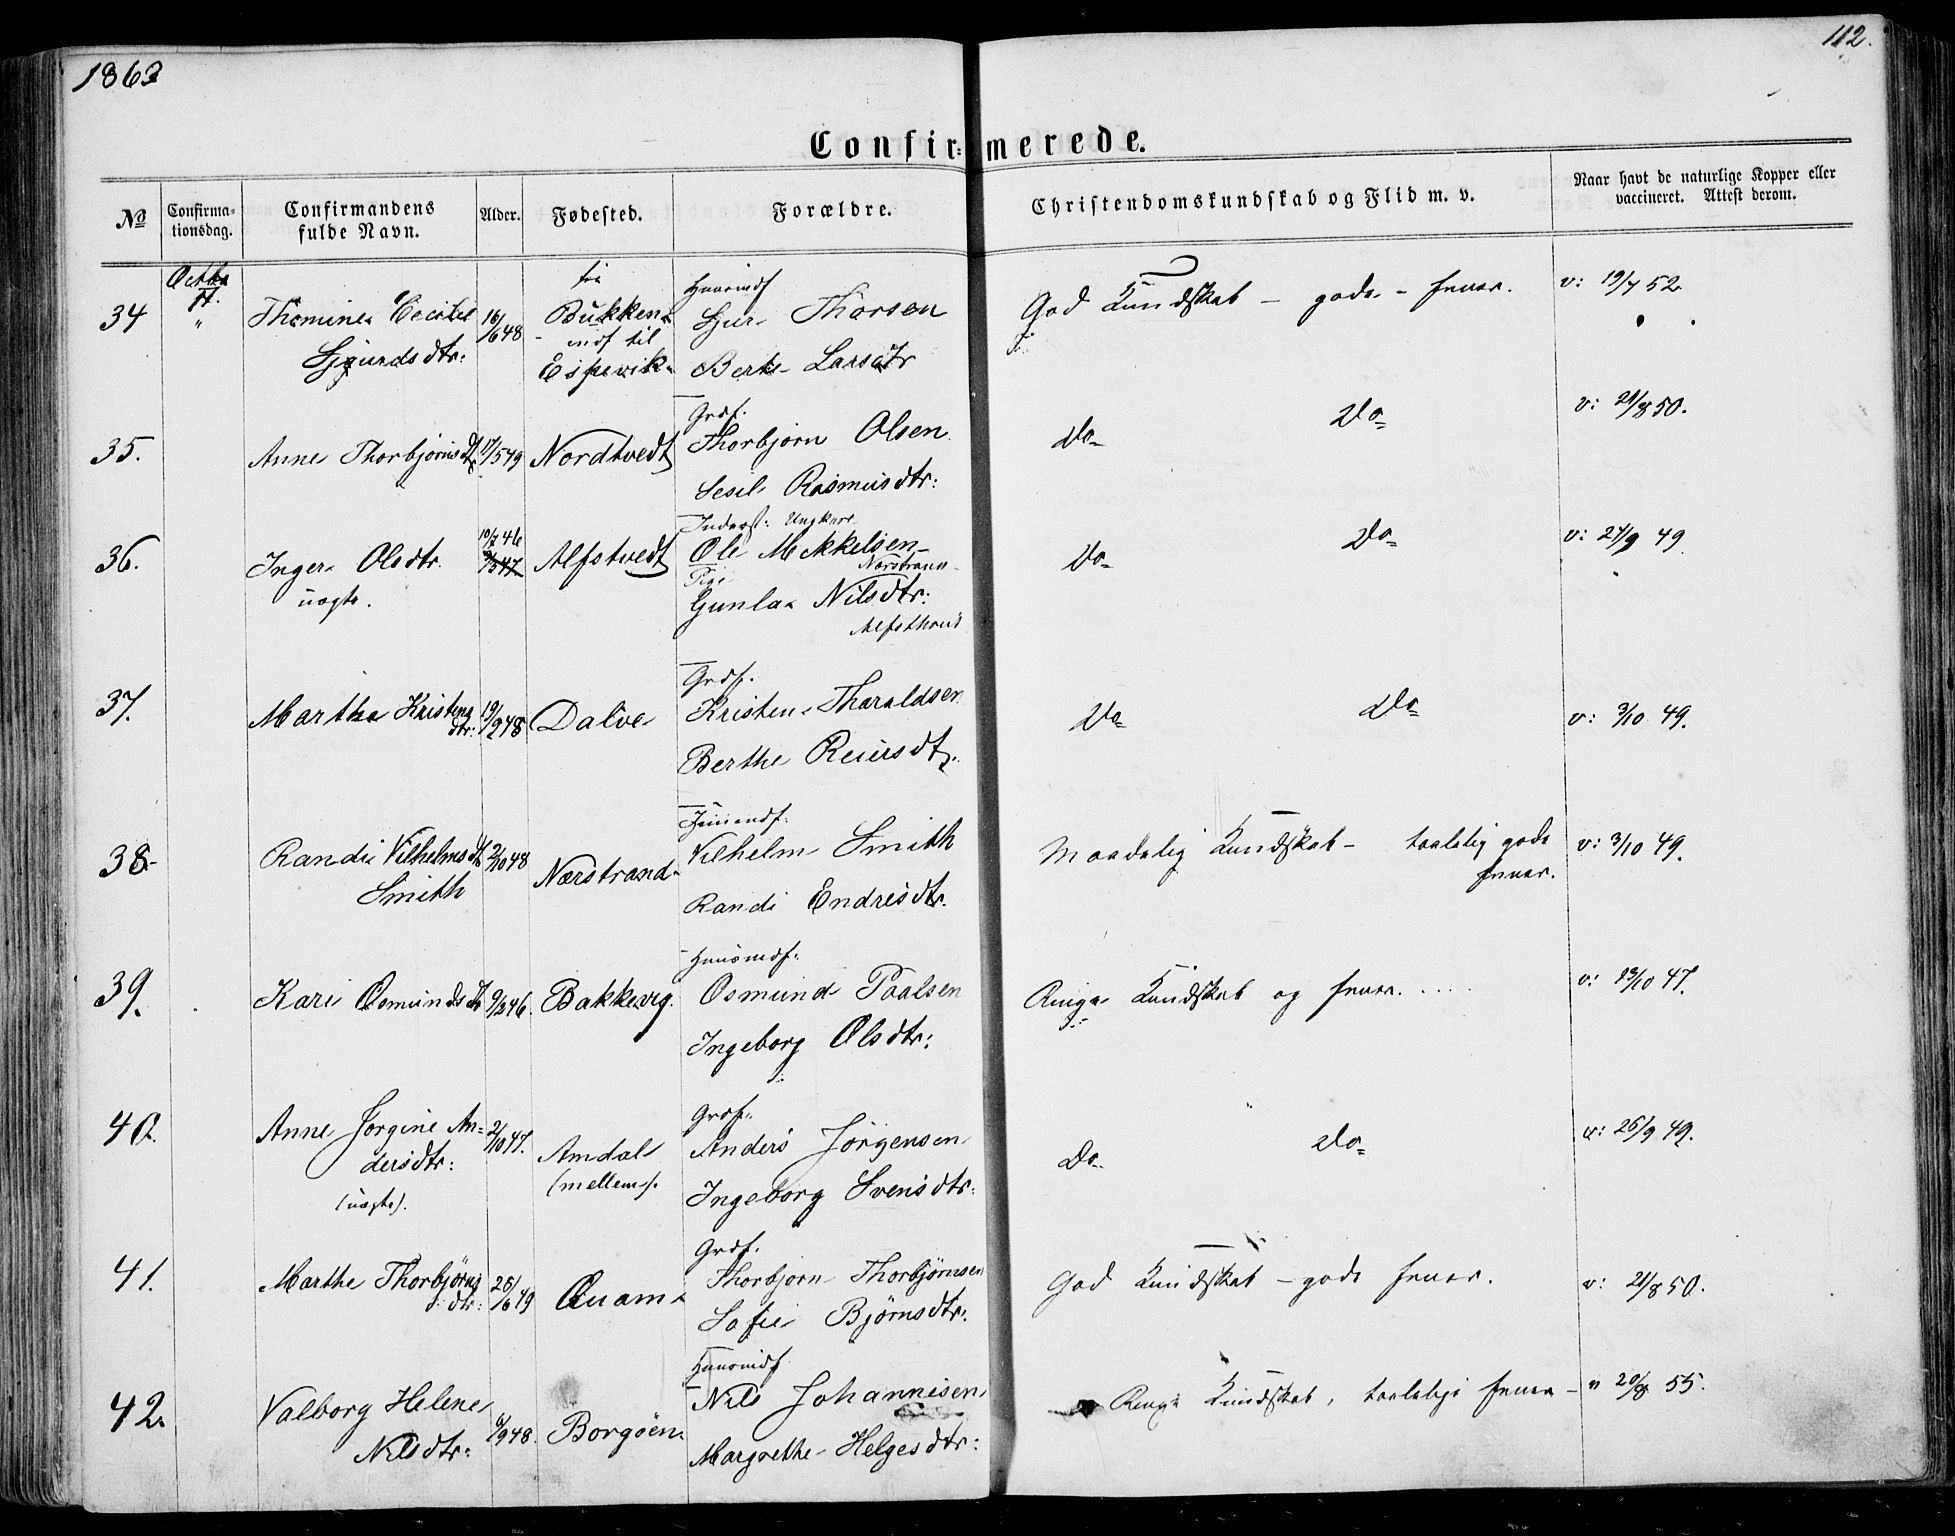 1863
112.
Confir-merede.
No
Confirma-
tionsdag.
Confirmandens
fulde Navn.
Alder.
Fødested.
Forældre.
Christendomskundskab og Flid m. v.
Naar havt de naturlige Kopper eller
vaccineret. Attest derom.
34 Octbr " Thomine Cecilie Sjgurdsdtr: 16/6 48 fra Bukken indf til Espevik Huusmdf Sjur Thorsen Berte Larsdtr God Kundskab - gode - v: 19/7 52
35. Anne Thorbjørnsdtr 17/5 49 Nordtvedt Grdf. Thorbjørn Olsen Sesil Rasmusdtr: Do Do v: 21/8 50.
36. Inger Olsdtr uægte. 10/7 46 Alfstvedt Inderst: Ungkarl Ole Mikkelsen Nærstrand Pige Gunla Nilsdtr: Do Do v: 24/9 49
37. Marthe Kristensdtr: 19/2 48 Dalve Grdf. Kristen Tharaldsen Berthe Reiersdtr. Do Do v: 3/10 49.
38. Randi Vilhelmsdtr Smith 2/10 48 Nærstrand Vilhelm Smith Randi Endresdtr. Maadelig Kundskab - taalelig gode v: 3/10 49.
39. Kari Osmundsdtr 9/2 46. Bakkevig. Huusmdf. Osmund Paalsen Ingeborg Olsdtr: Ringe Kundskab og v: 23/10 47.
40. Anne Jørgine An-
dersdtr: (uægte). 2/10 47. Amdal (mellem). Grdf. Anders Jørgensen Ingeborg Svensdtr: Do Do v: 26/9 49.
41. Marthe Thorbjørnsdtr: 25/6 49 Quam Grdf. Thorbjørn Thorbjørnsen Sofie Bjørnsdtr: God Kundskab - gode v: 21/8 50.
42. Valborg Helene Nilsdtr: 6/9 48. Borgøen Huusmdf Nils Johannesen Margrethe Helgesdtr: Ringe Kundskab, taalelige v 20/8 55.